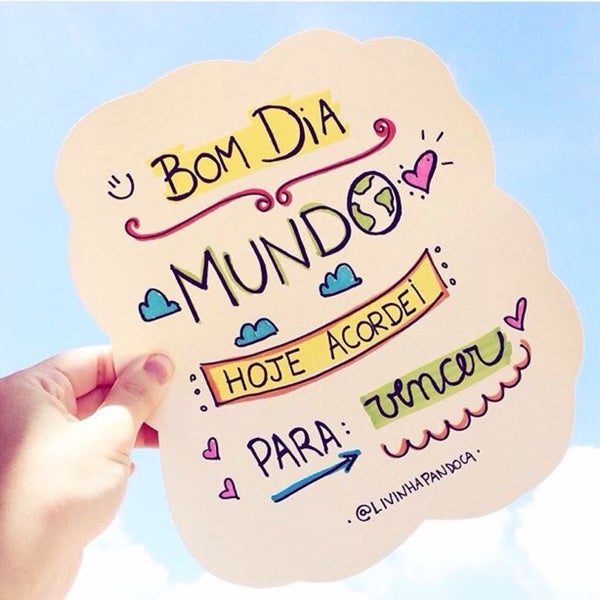 BOM DiA
MUNDO
HOJE ACORDEi
PARA: vencer
.@LIVINHAPANDOCA.